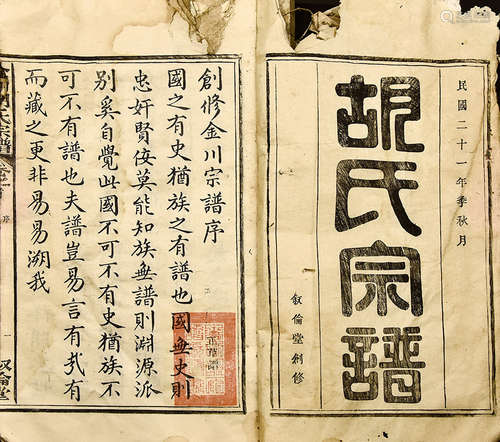 民國二十一年季秋月
胡氏宗譜
叙倫堂創修
創修金川宗譜序
國之有史猶族之有譜也國無史則
忠奸賢佞莫能知族無譜則淵源派
別奚自覺此國不可不有史猶族不
可不有譜也夫譜豈易言有哉有
而藏之更非易易溯我
胡氏宗譜
序
一
叙倫堂